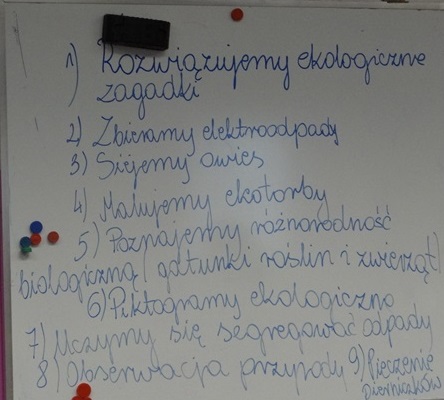 1) Rozwiązujemy ekologiczne
zagadki
2) Zbieramy elektroodpady
3) Siejemy owies
4) Malujemy ekotorby
5) Poznajemy różnorodność
biologiczną (gatunki roślin i zwierząt)
6) Piktogramy ekologiczne
7) Uczymy się segregować odpady
8) Obserwacja przyrody 9) Pieczenie
Pierniczków